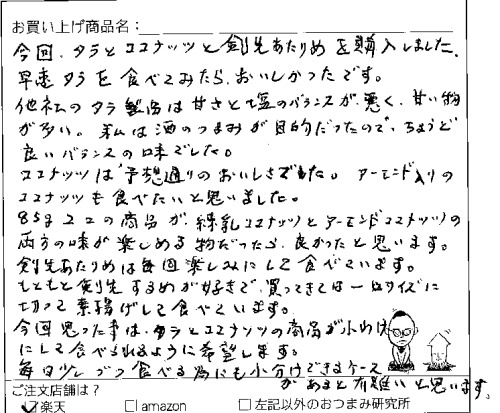 お買い上げ商品名：
今回、タラとココナッツと剣先あたりめを購入しました、
早速タラを食べてみたら、おいしかったです。
他社のタラ製品は甘さと塩のバランスが悪く、甘い物
が多い。私は酒のつまみが目的だったので、ちょうど
良いバランスの味でした。
ココナッツは予想通りのおいしさでした。アーモンド入りの
ココナッツも食べたいと思いました。
85gココの商品が、練乳ココナッツとアーモンドココナッツの
両方の味が楽しめる物だったら、良かったと思います。
剣先あたりめは毎回楽しみにして食べています。
もともと剣先するめが好きで、買ってきては一口サイズに
切って素揚げして食べています。
今回思った事は、タラとココナッツの商品が小わけ
にして食べられるように希望します。
毎日少しづつ食べる為にも小分けできるケース
があると有難いと思います。
ご注文店舗は？
楽天 □ amazon □ 左記以外のおつまみ研究所